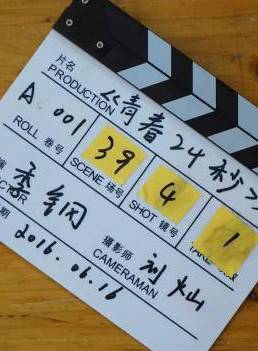 片名
PRODUCTION 《青春24秒》
A001
ROLL 卷号
39
SCENE 场号
4
SHOT 镜号
1
演
季钢
CAMERAMAN 摄影师 刘灿
期
2016.06.16